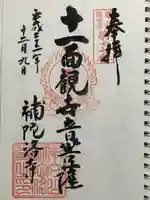 奉拝
十一面観世音菩薩
補陀洛寺
平成二十二年
十二月九日